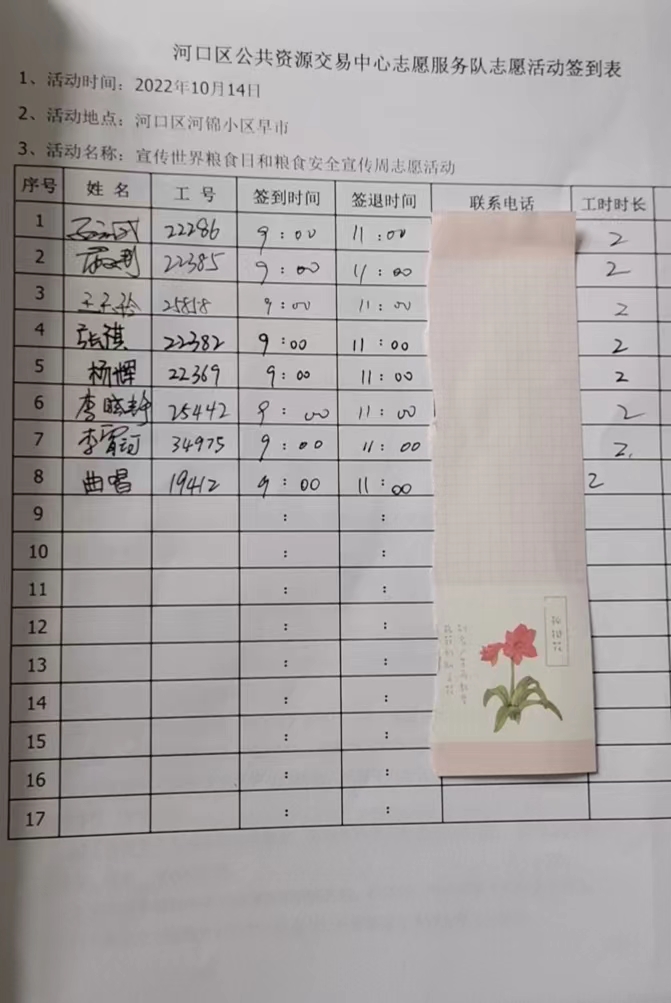 河口区公共资源交易中心志愿服务队志愿活动签到表
1、活动时间：2022年10月14日
2、活动地点：河口区河锦小区早市
3、活动名称：宣传世界粮食日和粮食安全宣传周志愿活动
序号 姓名 工号 签到时间 签退时间 联系电话 工时时长
1 22286 9:00 11:00 2
2 22385 9:00 11:00 2
3 25858 9:00 11:00 2
4 张祺 22382 9:00 11:00 2
5 杨辉 22369 9:00 11:00 2
6 李晓静 25442 9:00 11:00 2
7 34975 9:00 11:00 2.
8 曲唱 19412 9:00 11:00 2
9 : :
10 : :
11 : :
12 : :
13 : :
14 : :
15 : :
16 : :
17 : :